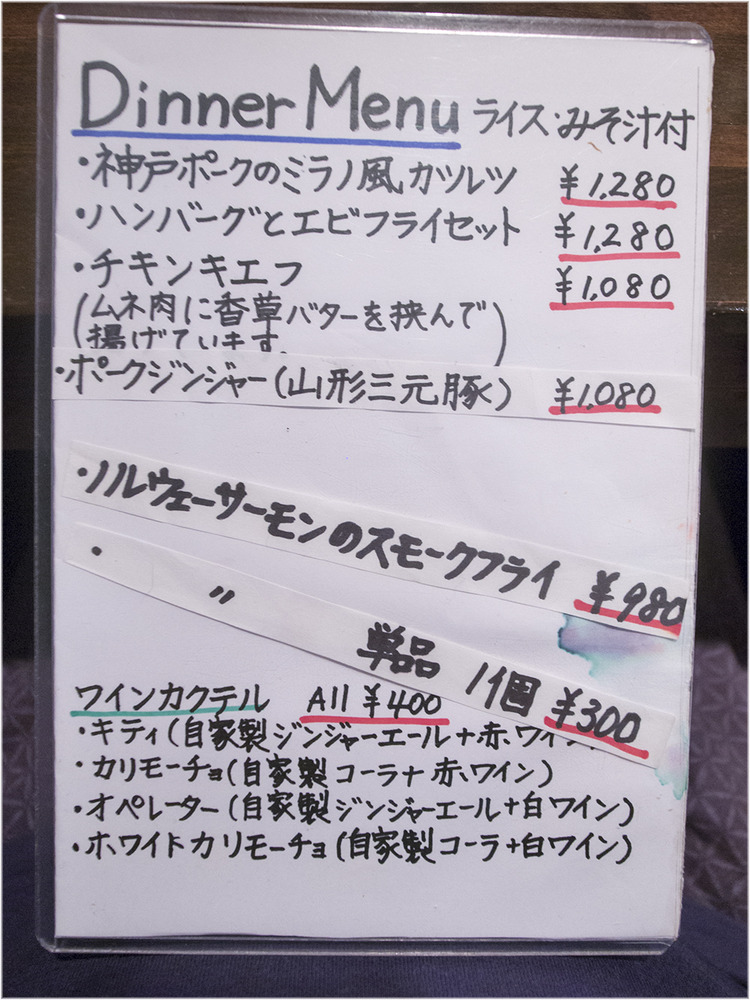 Dinner Menu ライス・みそ汁付
・神戸ポークのミラノ風カツレツ ¥1,280
・ハンバーグとエビフライセット ¥1,280
・チキンキエフ ¥1,080
(ムネ肉に香草バターを挟んで
揚げています。)
・ポークジンジャー(山形三元豚) ¥1,080
・ノルウェーサーモンのスモークフライ ¥980
・ 〃 単品 1個 ¥300
ワインカクテル All ¥400
・キティ(自家製ジンジャーエール+赤ワイン)
・カリモーチョ(自家製コーラ+赤ワイン)
・オペレーター(自家製ジンジャーエール+白ワイン)
・ホワイトカリモーチョ(自家製コーラ+白ワイン)